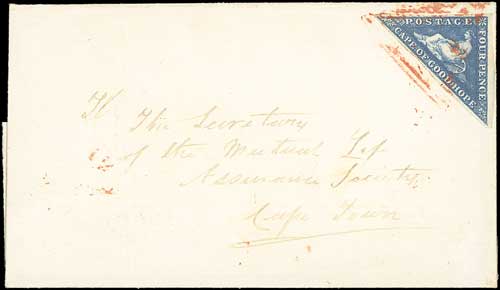 POSTAGE
FOUR PENCE
CAPE OF GOOD HOPE
The Secretary
of the Mutual Life
Assurance Society
Cape Town